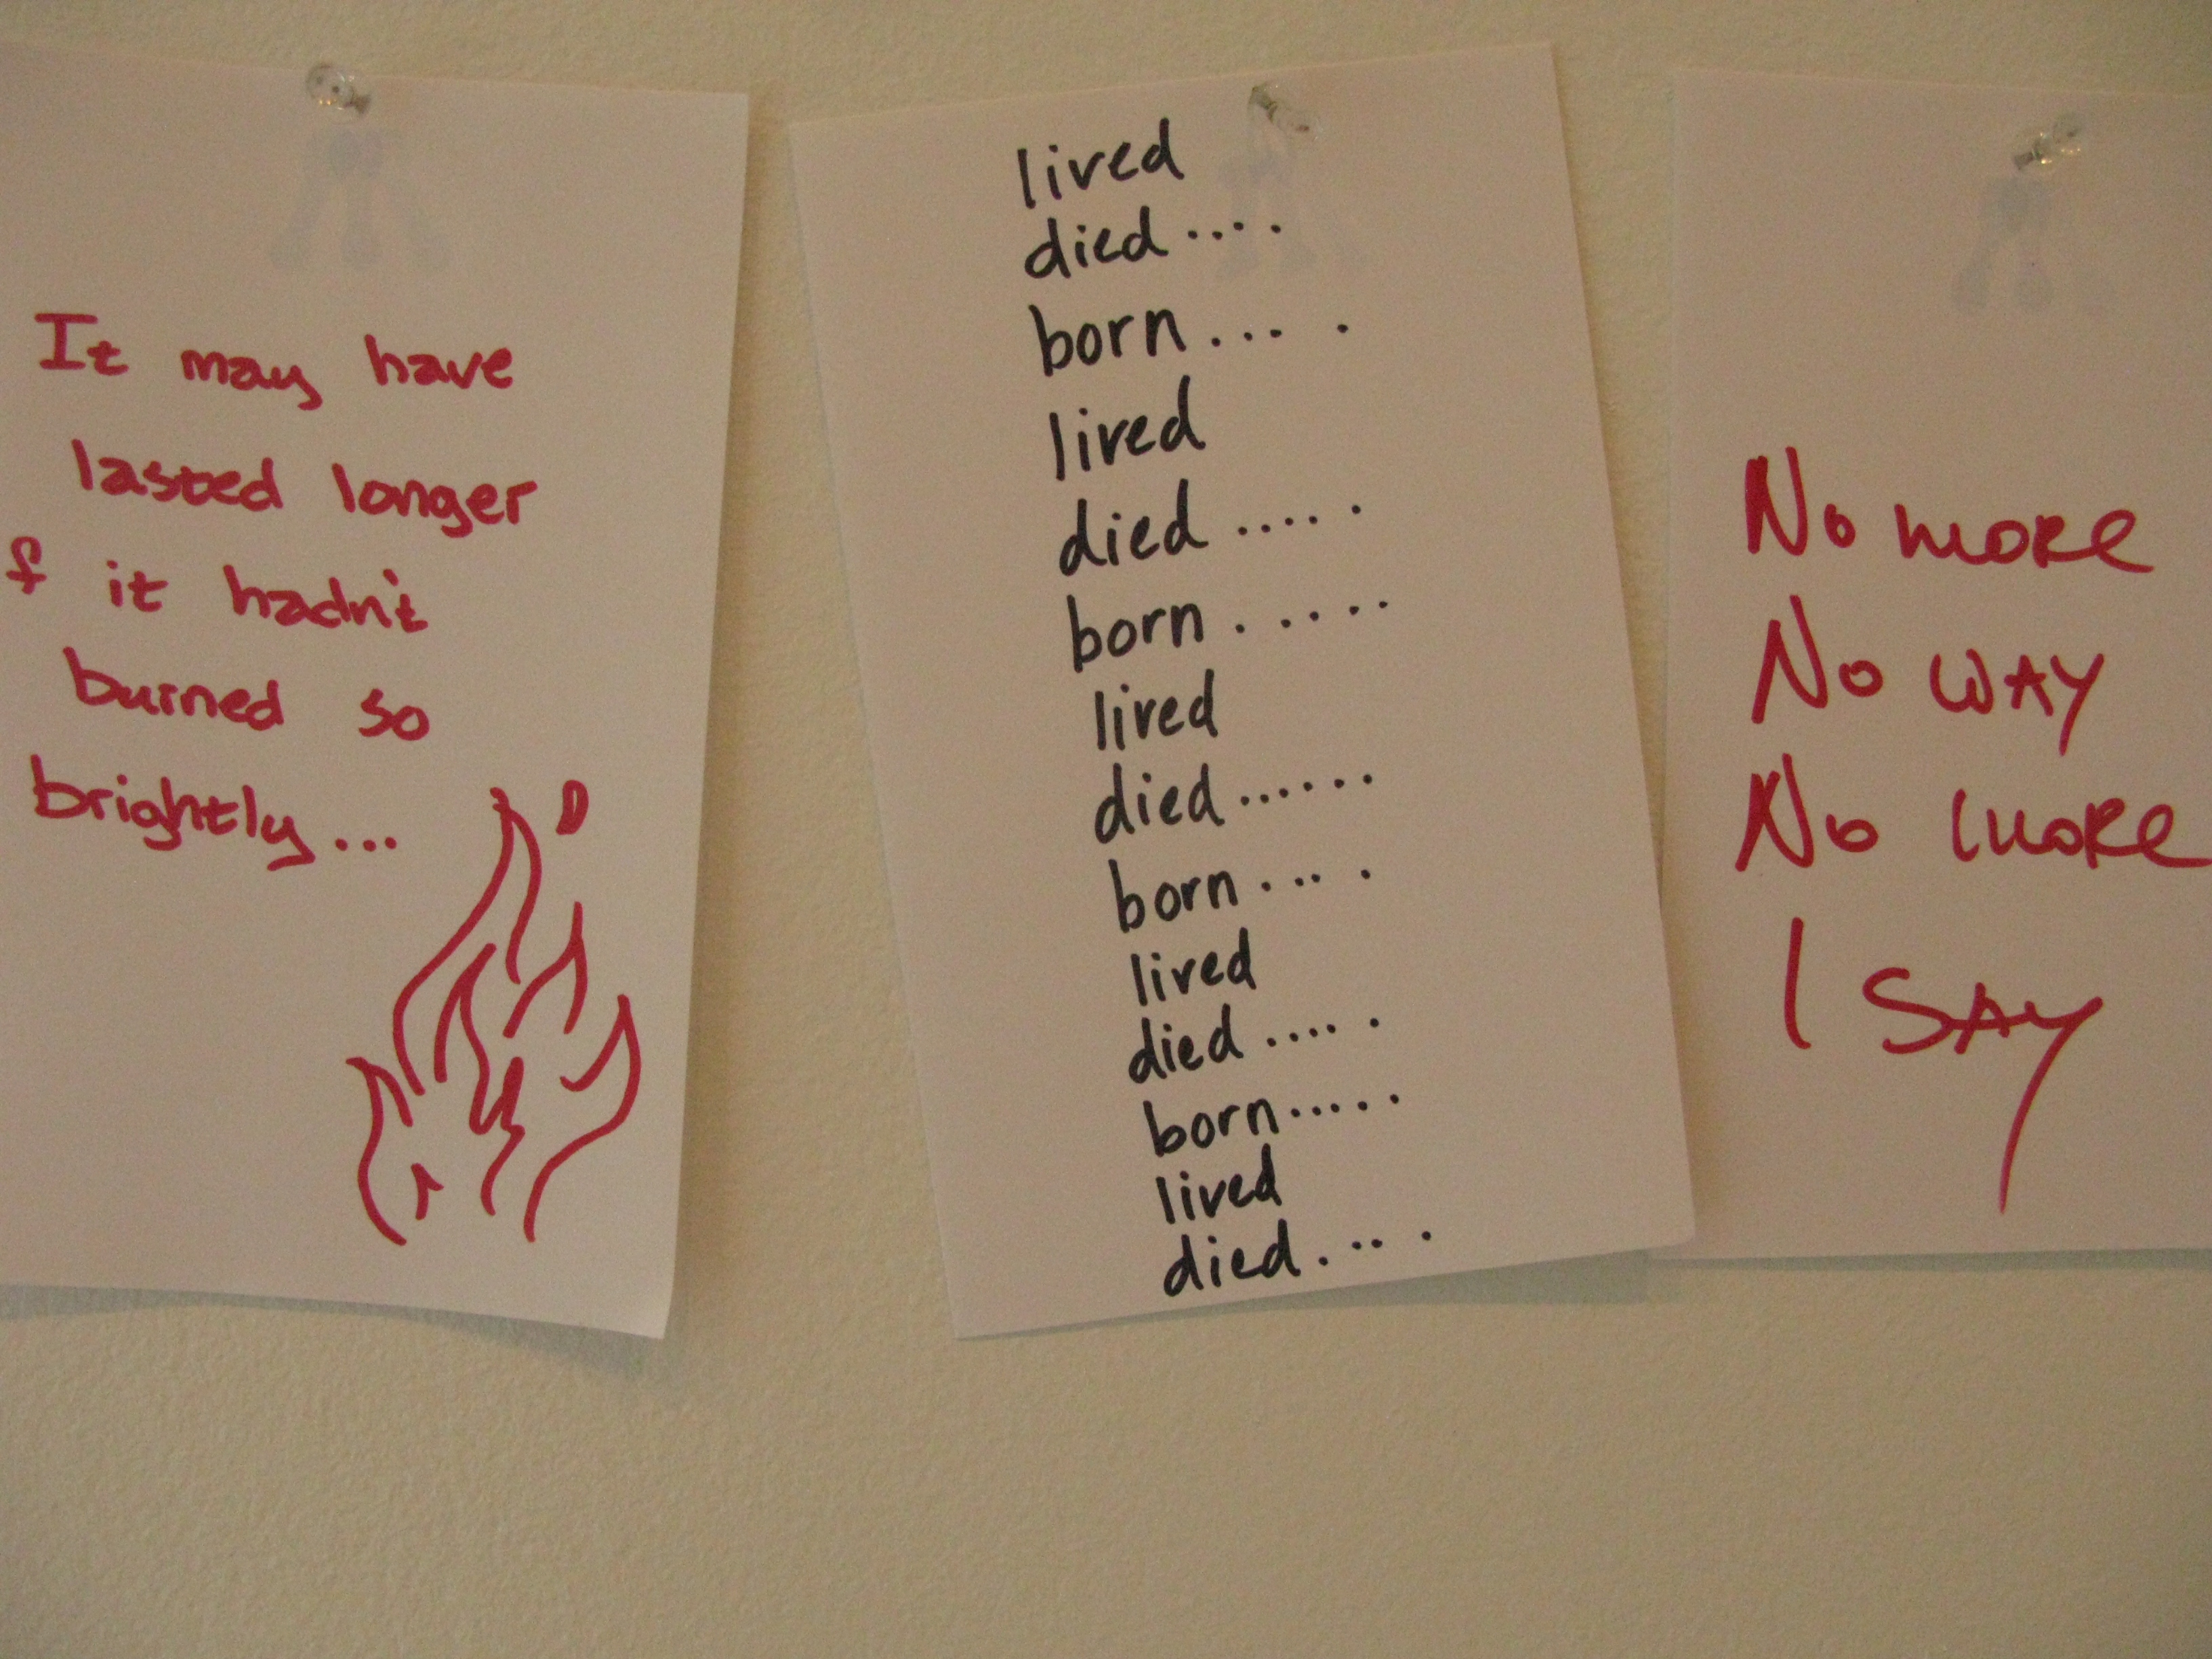 It may have
lasted longer
f it hadn't
burned so
brightly...
lived
died....
born... .
lived
died.....
born.....
lived
died......
born.... 
lived
died.....
born.....
lived
died....
No more
No way
No more
I say